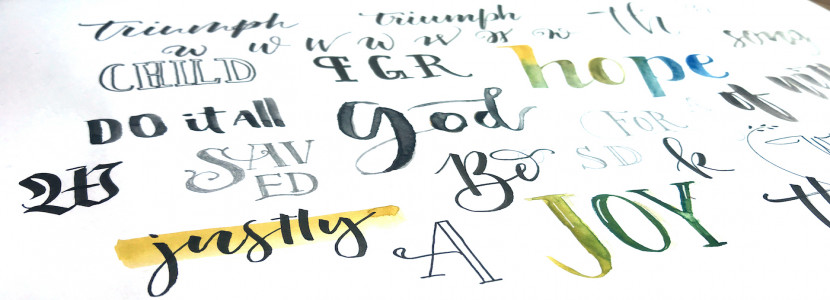 triumph triumph Th
w w w w w
CHILD F G R hope sons
DO it all god FOR of
W SAVED Be SD &
justly A JOY th